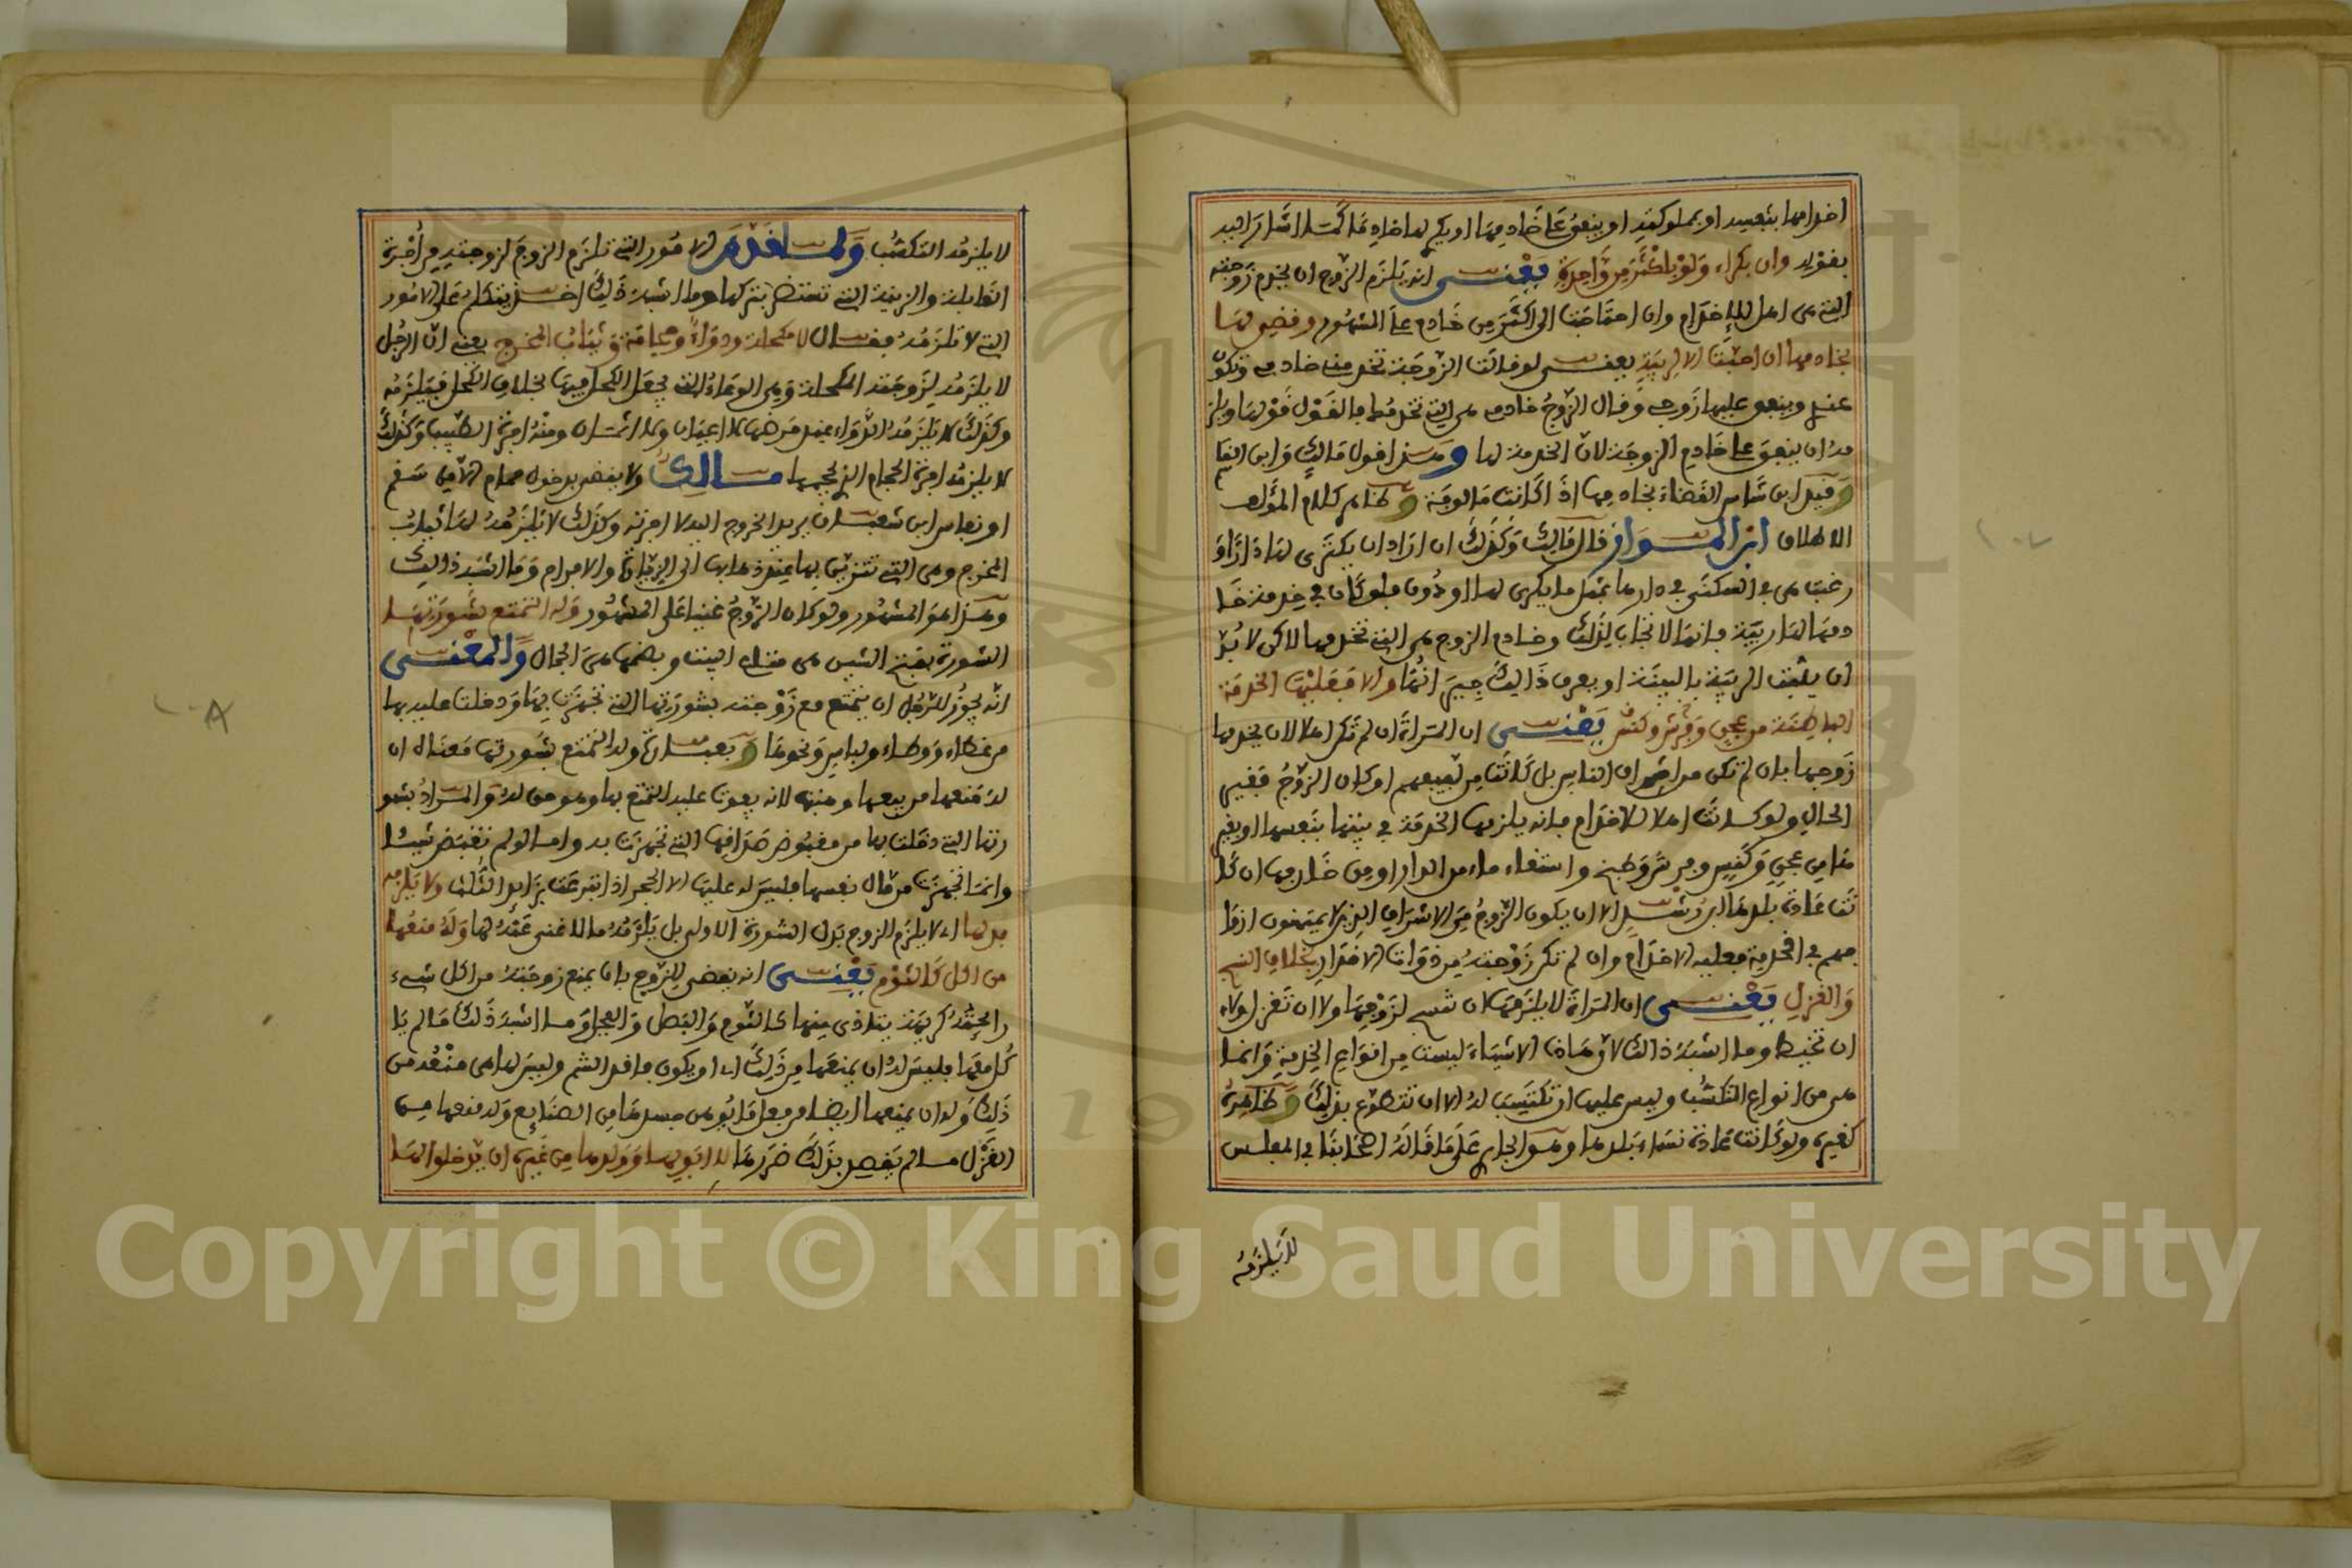 اخدامها بنفسه او بمملوكته او ينفق على خادمها او يكري لها خادما كما اشار اليه
بقوله وان بكراء ولو باكثر من واحدة يعني انه يلزم الزوج ان يخدم زوجته
التي هي اهل للاخدام وان احتاجت الى اكثر من خادم على المشهور وقضي لها
بخادمها ان احبت الا لريبة يعني لو قالت الزوجة تخدمني خادمي وتكون
عندي وينفق عليها زوجي وقال الزوج خادمي هي التي تخدمك فالقول قولها ويلز
مه ان ينفق على خادم الزوجة لان الخدمة لها وهذا قول مالك وابن القاسم
وقيد ابن شاس القضاء بخادمها اذا كانت مالوفة وظاهر كلام المؤلف
الاطلاق ابن المواز قال مالك وكذلك ان اراد ان يكتري لها دارا و
رغبت هي في السكنى في دارها بمثل ما يكري لها او دون فلو كان في خدمة خا
دمها لها ريبة فانها لا تجاب لذلك وخادم الزوج هي التي تخدمها لاكن لا بد
ان يثبت الريبة بالبينة او يعرف ذالك جيرانها والا فعليها الخدمة
الباطنة من عجن وفرش وكنس يعني ان المراة ان لم تكن اهلا لان يخدمها
زوجها بان لم تكن من اشراف الناس بل كانت من لفيفهم او كان الزوج فقير
الحال ولو كانت اهلا للاخدام فانه يلزمها الخدمة في بيتها بنفسها او بغير
ها من عجن وكنس وفرش وطبخ واستقاء ماء من الدار او من خارجها ان كا
نت عادة بلدها ابن رشد الا ان يكون الزوج من الاشراف الذين لا يمتهنون ازوا
جهم في الخدمة فعليه الاخدام وان لم تكن زوجته من ذوات الاقدار بخلاف النسج
والغزل يعني ان المراة لا يلزمها ان تنسج لزوجها ولا ان تغزل ولا
ان تخيط وما اشبه ذالك لان هاذه الاشياء ليست من انواع الخدمة وانما
هي من انواع التكسب وليس عليها ان تكتسب له الا ان تتطوع بذلك وظاهره
كغيره ولو كانت عادة نساء بلدها وهو الجاري على ما قاله اصحابنا في المفلس
لا يلزمه
لا يلزمه التكسب ولما قدم الامور التي تلزم الزوج لزوجته من اجرة
القابلة والزينة التي تستضر بتركها وما اشبه ذلك اخذ يتكلم على الامور
التي لا تلزمه فقال لا مكحلة ودواء وحجامة وثياب المخرج يعني ان الرجل
لا يلزمه لزوجته المكحلة وهي الوعاء الذي يجعل الكحل فيها بخلاف الكحل فيلزمه
وكذلك لا يلزمه الدواء عند مرضها لا اعيان ولا اثمان ومنه اجرة الطبيب وكذلك
لا يلزمه اجرة الحجام الذي يحجمها مالك ولا يقضى بدخول حمام الا من سقم
او نفاس ابن شعبان يريد الخروج اليه لا اجرته وكذلك لا يلزمه لها ثياب
المخرج وهي التي تتزين بها عند ذهابها الى الزيارة والافراح وما اشبه ذالك
وهذا هو المشهور ولو كان الزوج غنيا على المشهور وله التمتع بشورتها
الشورة بفتح الشين هي متاع البيت وبضمها هي الجمال والمعنى
انه يجوز للرجل ان يتمتع مع زوجته بشورتها التي تجهزت بها ودخلت عليه بها
من غطاء ووطاء ولباس ونحوها وبعبارة وله التمتع بشورتها معناه ان
له منعها من بيعها وهبتها لانه يفوت عليه التمتع بها وهو حق له والمراد بشو
رتها التي دخلت بها من مقبوض صداقها التي تجهزت به واما لو لم تقبض شيئا
وانما تجهزت من مال نفسها فليس له عليها الا الحجر اذا تبرعت بزائد الثلث ولا يلزمه
بدلها اي لا يلزم الزوج بدل الشورة الاولى بل يلزمه ما لا غنى عنه لها وله منعها
من اكل كالثوم يعني انه يقضى للزوج بان يمنع زوجته من اكل شيء
رائحته كريهة يتاذى منها كالثوم والبصل والفجل وما اشبه ذلك ما لم يا
كل معها فليس له ان يمنعها من ذلك اي او يكون فاقد الشم وليس لها هي منعه من
ذلك وله ان يمنعها ايضا من فعل ما يوهن جسدها من الصنايع وله منعها من
الغزل ما لم يقصد بذلك ضررها لا ابويها وولدها من غيره ان يدخلوا لها